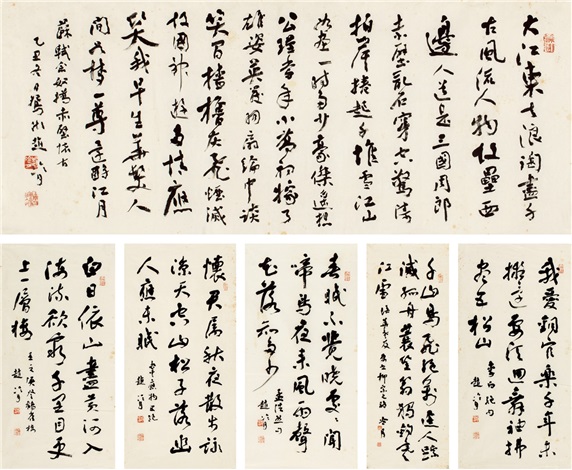 大江東去浪淘盡千
古風流人物故壘西
邊人道是三國周郎
赤壁亂石穿空驚濤
拍岸捲起千堆雪江山
如畫一時多少豪傑遙想
公瑾當年小喬初嫁了
雄姿英發羽扇綸巾談
笑間檣櫓灰飛煙滅
故國神遊多情應
笑我早生華髮人
間如夢一尊還酹江月
蘇軾念奴嬌赤壁懷古
乙丑冬日揚州趙
我愛銅官樂千年未
擬還要須迴舞袖拂
盡五松山
李白絕句
趙
千山鳥飛絕萬逕人蹤
滅孤舟蓑笠翁獨釣寒
江雪
春眠不覺曉處處聞
啼鳥夜來風雨聲
花落知多少
孟浩然句
趙
懷君屬秋夜散步詠
涼天空山松子落幽
人應未眠
韋應物
趙
白日依山盡黃河入
海流欲窮千里目更
上一層樓
王之渙登鸛雀樓
趙